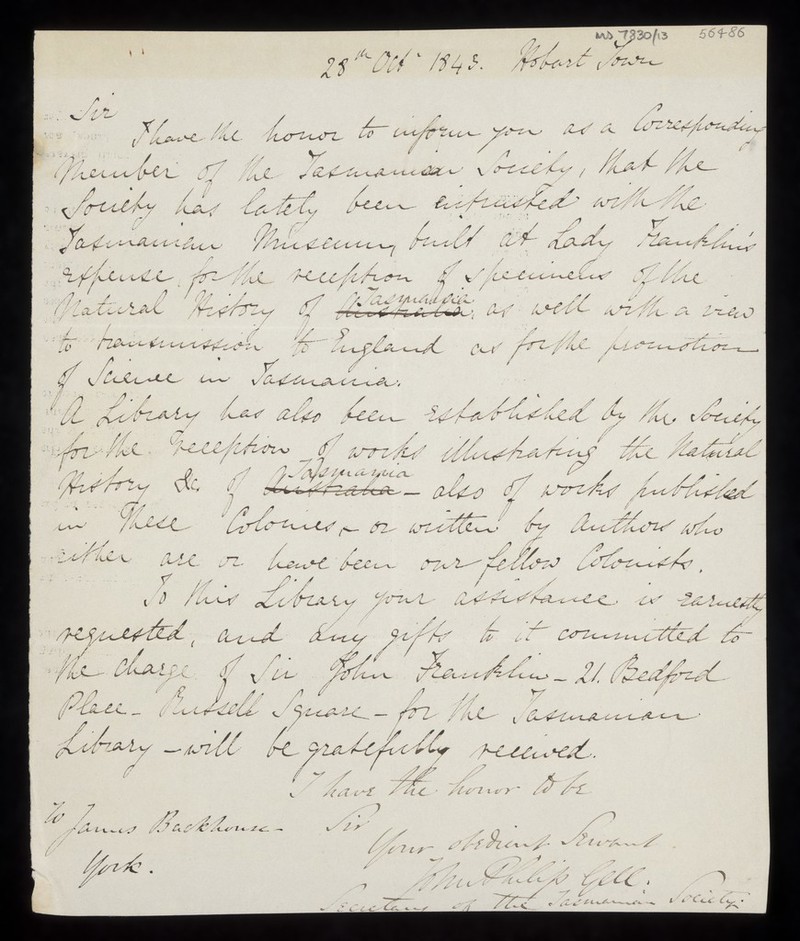 MS 7330/13 56486
28th Octr 1843. Hobart Town
Sir
I have the honor to inform you as a Corresponding
Member of the Tasmanian Society, that the
Society has lately been entrusted with the
Tasmanian Museum, built at Lady Franklin's
expense for the reception of specimens of the
Natural History of Australia Tasmania as well with a view
to transmission to England as for the promotion
of Science in Tasmania.
A Library has also been established by the Society
for the reception of works illustrating the Natural
History &c. of Australia Tasmania - also of works published
in these Colonies, - or written by Authors who
either are or have been our fellow Colonists.
To this Library your assistance is earnestly
requested, and any gifts to it committed to
the charge of Sir John Franklin - 21. Bedford
Place - Russell Square - for the Tasmanian
Library - will be gratefully received.
I have the honor to be
To James Backhouse - Sir
Your obedient Servant
York.
John Philip Gell.
Secretary of the Tasmanian Society.